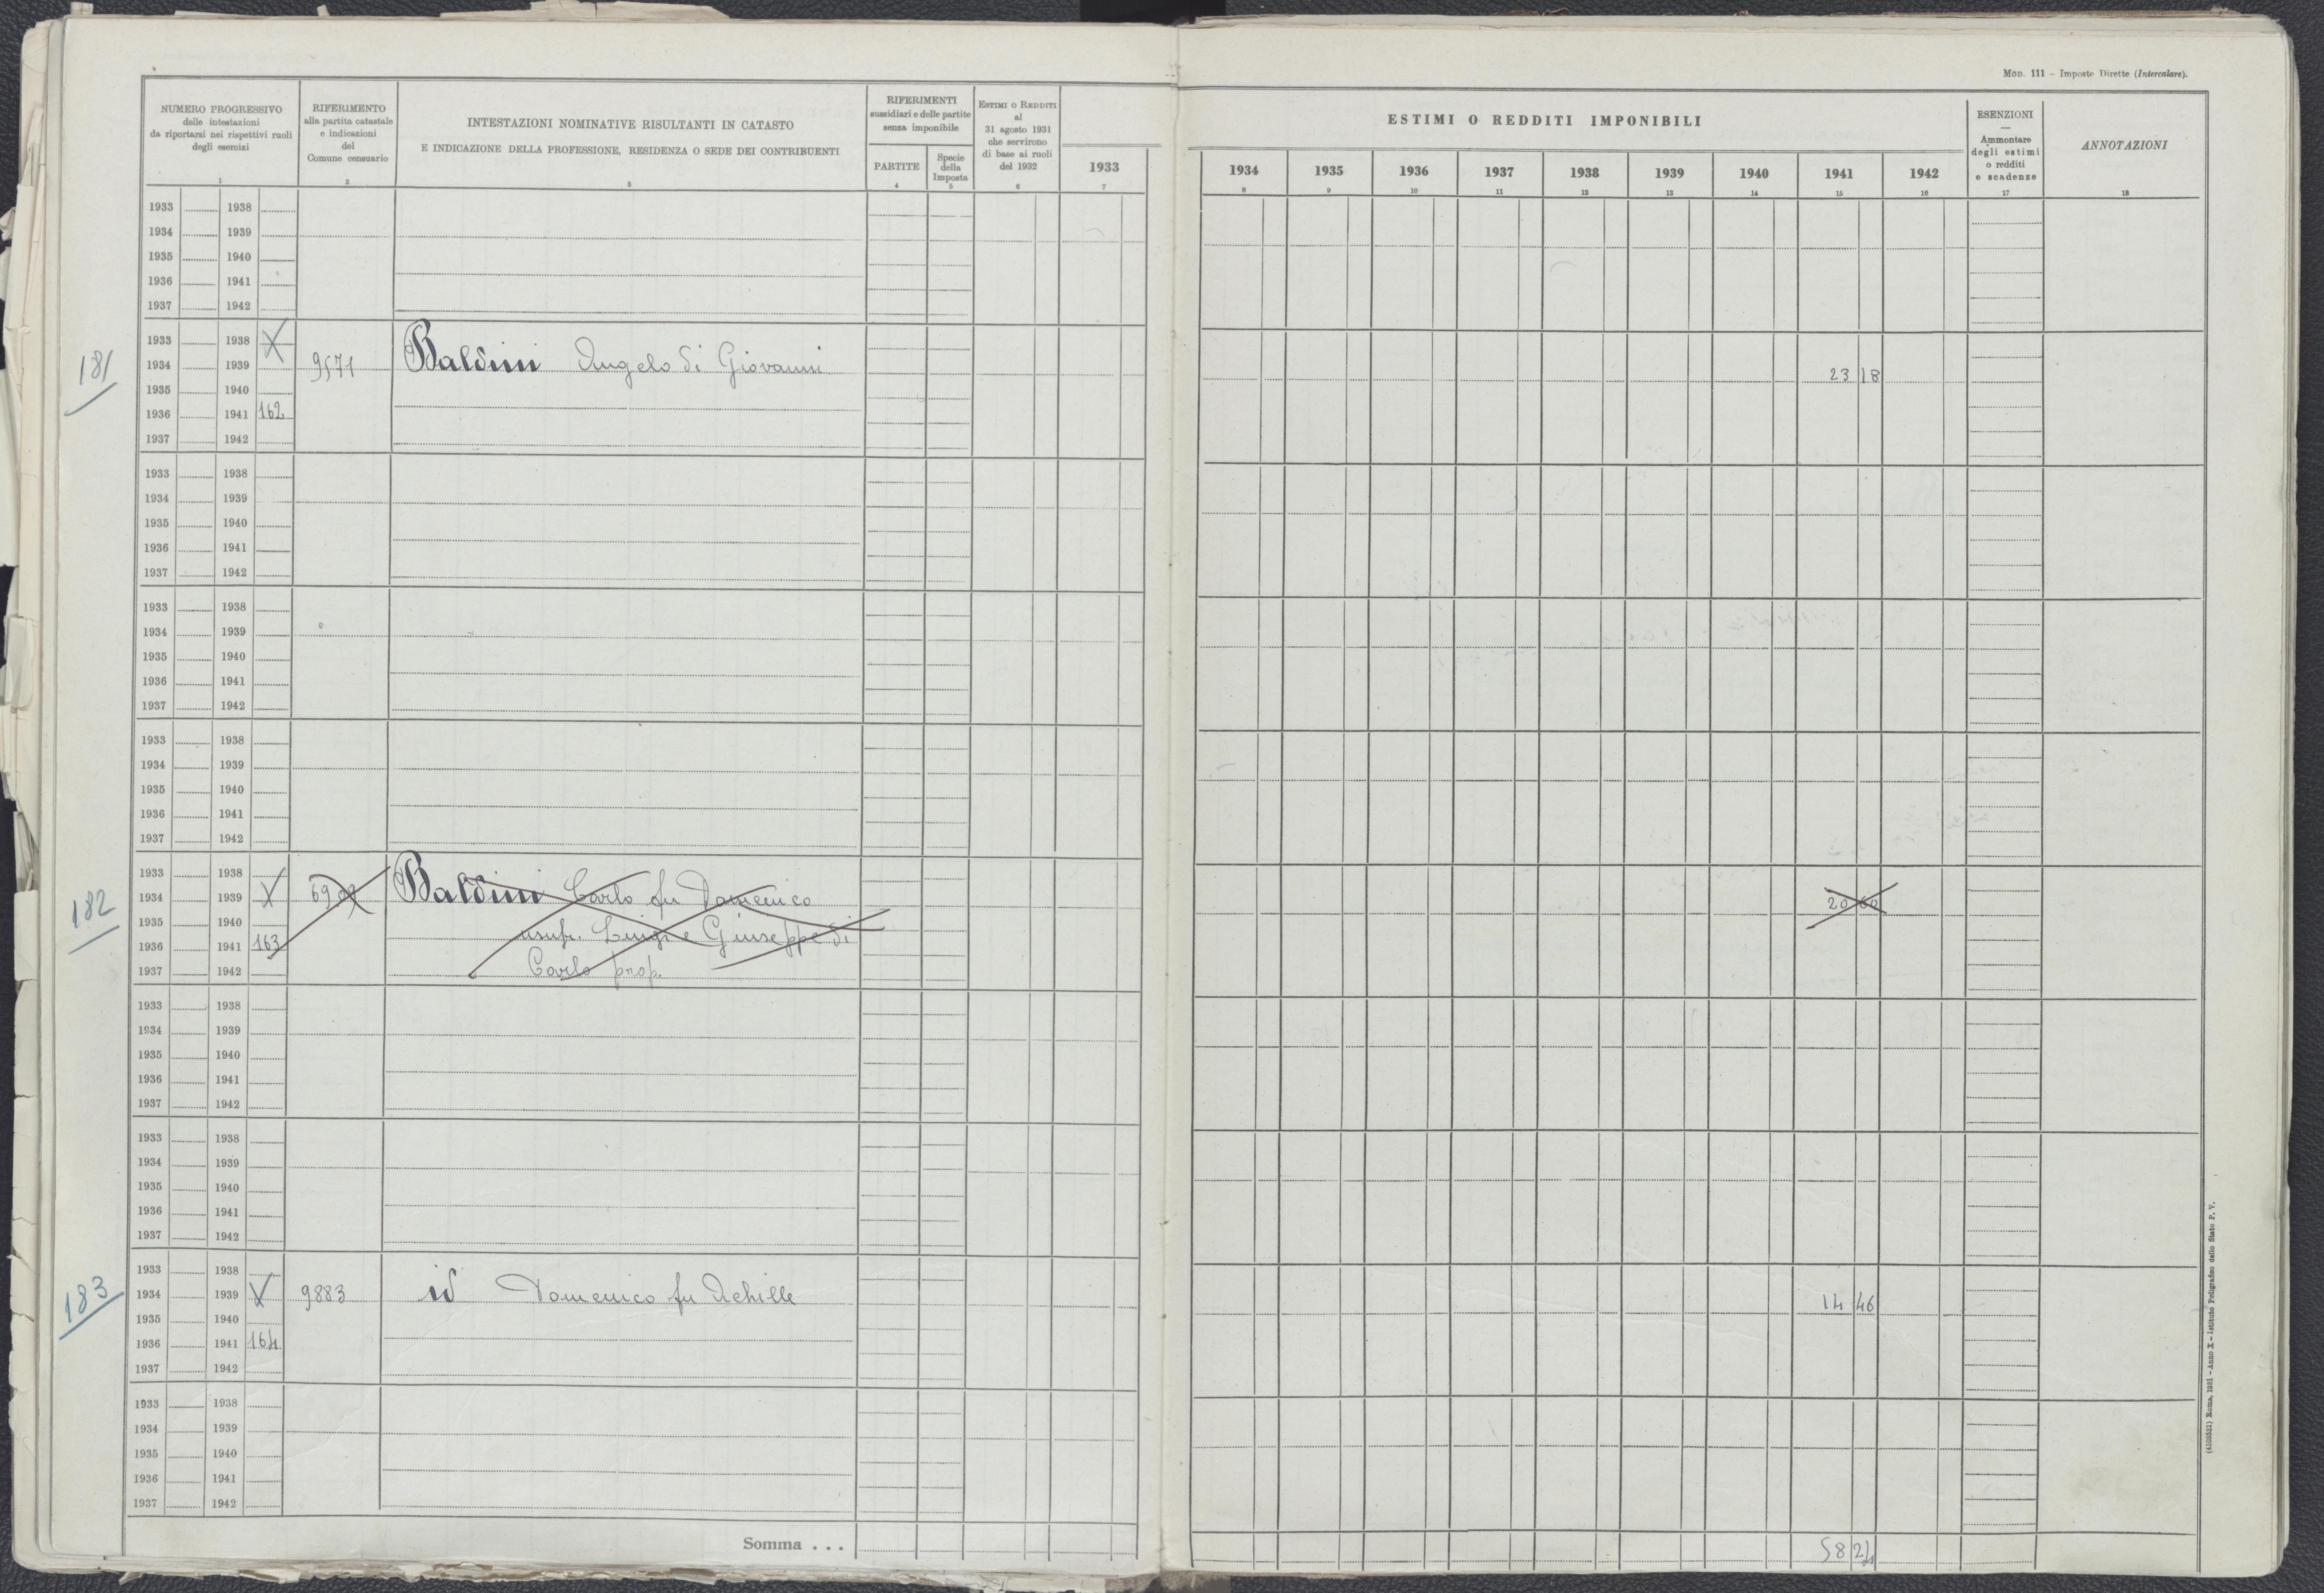 MOD. 111 – Imposte Dirette (Intercalare).
NUMERO PROGRESSIVO
delle intestazioni
da riportarsi nei rispettivi ruoli
degli esercizi
1
RIFERIMENTO
alla partita catastale
e indicazioni
del
Comune censuario
2
INTESTAZIONI NOMINATIVE RISULTANTI IN CATASTO
E INDICAZIONE DELLA PROFESSIONE, RESIDENZA O SEDE DEI CONTRIBUENTI
3
RIFERIMENTI
sussidiari e delle partite
senza imponibile
PARTITE
4
Specie
della
Imposta
5
ESTIMI O REDDITI
al
31 agosto 1931
che servirono
di base ai ruoli
del 1932
6
1933
7
ESTIMI O REDDITI IMPONIBILI
1934 1935 1936 1937 1938 1939 1940 1941 1942
8 9 10 11 12 13 14 15 16
ESENZIONI
—
Ammontare
degli estimi
o redditi
e scadenze
17
ANNOTAZIONI
18
1933 1938
1934 1939
1935 1940
1936 1941
1937 1942
181
1933 1938 X
1934 1939 9571 Baldini Angelo di Giovanni 23 18
1935 1940
1936 1941 162
1937 1942
1933 1938
1934 1939
1935 1940
1936 1941
1937 1942
1933 1938
1934 1939
1935 1940
1936 1941
1937 1942
1933 1938
1934 1939
1935 1940
1936 1941
1937 1942
182
1933 1938
1934 1939 X Baldini Carlo fu Domenico 20 60
1935 1940
1936 1941 163 usufr. Luigi e Giuseppe di
1937 1942 Carlo prop.
1933 1938
1934 1939
1935 1940
1936 1941
1937 1942
1933 1938
1934 1939
1935 1940
1936 1941
1937 1942
183
1933 1938
1934 1939 X 9883 id Domenico fu Achille 14 46
1935 1940
1936 1941 164
1937 1942
1933 1938
1934 1939
1935 1940
1936 1941
1937 1942
Somma . . . 58 24
(4105311) Roma, 1931 – Anno X – Istituto Poligrafico dello Stato P. V.